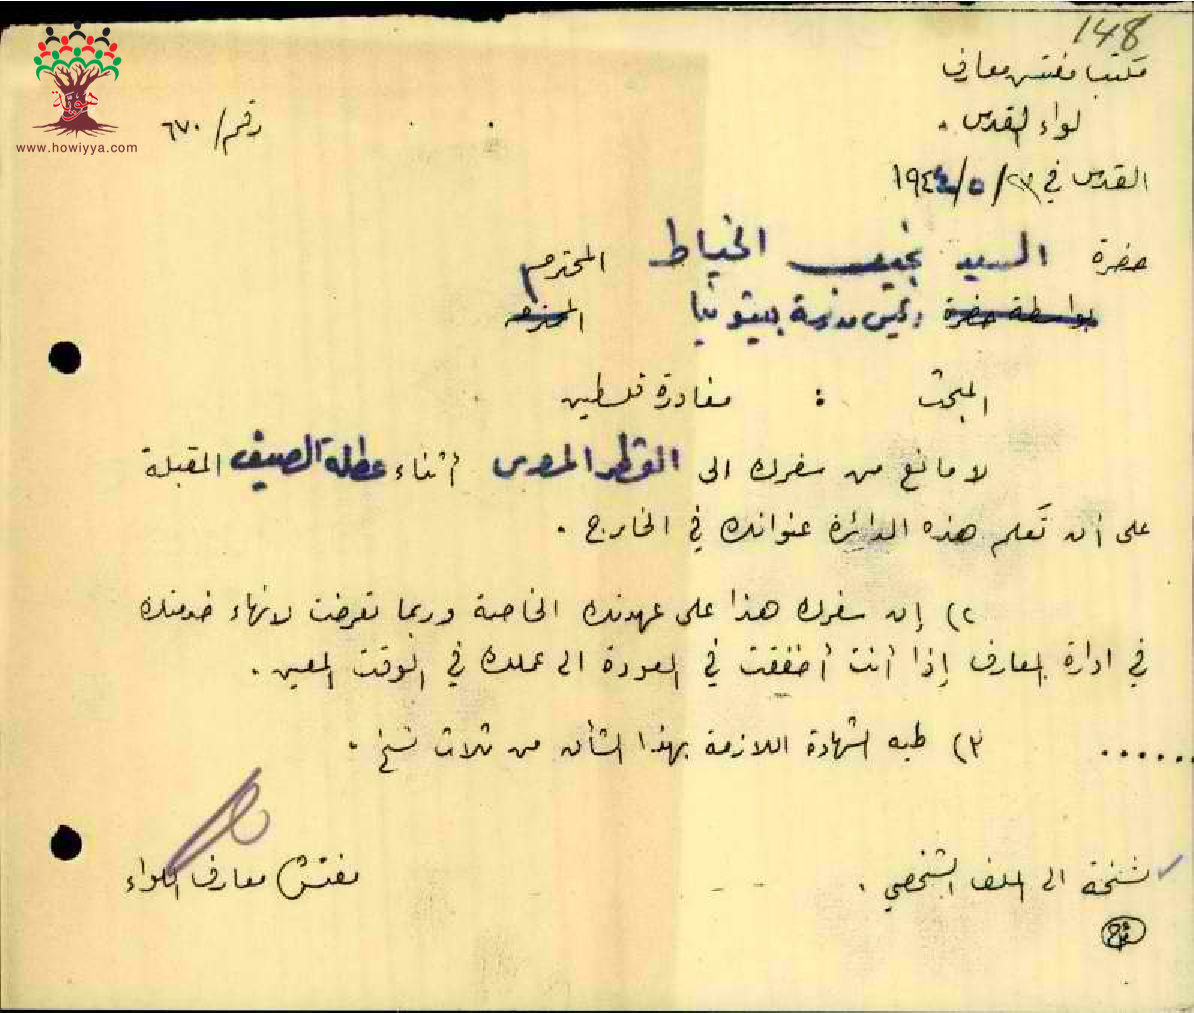 148
مكتب مفتش معارف
لواء القدس .
رقم / ٦٧٠
هوية
www.howiyya.com
القدس في ٢٣/٥/١٩٤٤
حضرة السيد نجيب الخياط المحترم
بواسطة حضرة رئيس مدرسة بيتونيا المحترم
المبحث : مغادرة فلسطين
لا مانع من سفرك الى القطر المصري أثناء عطلة الصيف المقبلة
على أن تَعلم هذه الدائرة عنوانك في الخارج .
٢) إن سفرك هذا على عهدتك الخاصة وربما تعرضت لانهاء خدمتك
في ادارة المعارف إذا أنت أخفقت في العودة الى عملك في الوقت المعين .
٣) طيه الشهادة اللازمة بهذا الشأن من ثلاث نسخ .
......
مفتش معارف اللواء
نسخة الى الملف الشخصي .